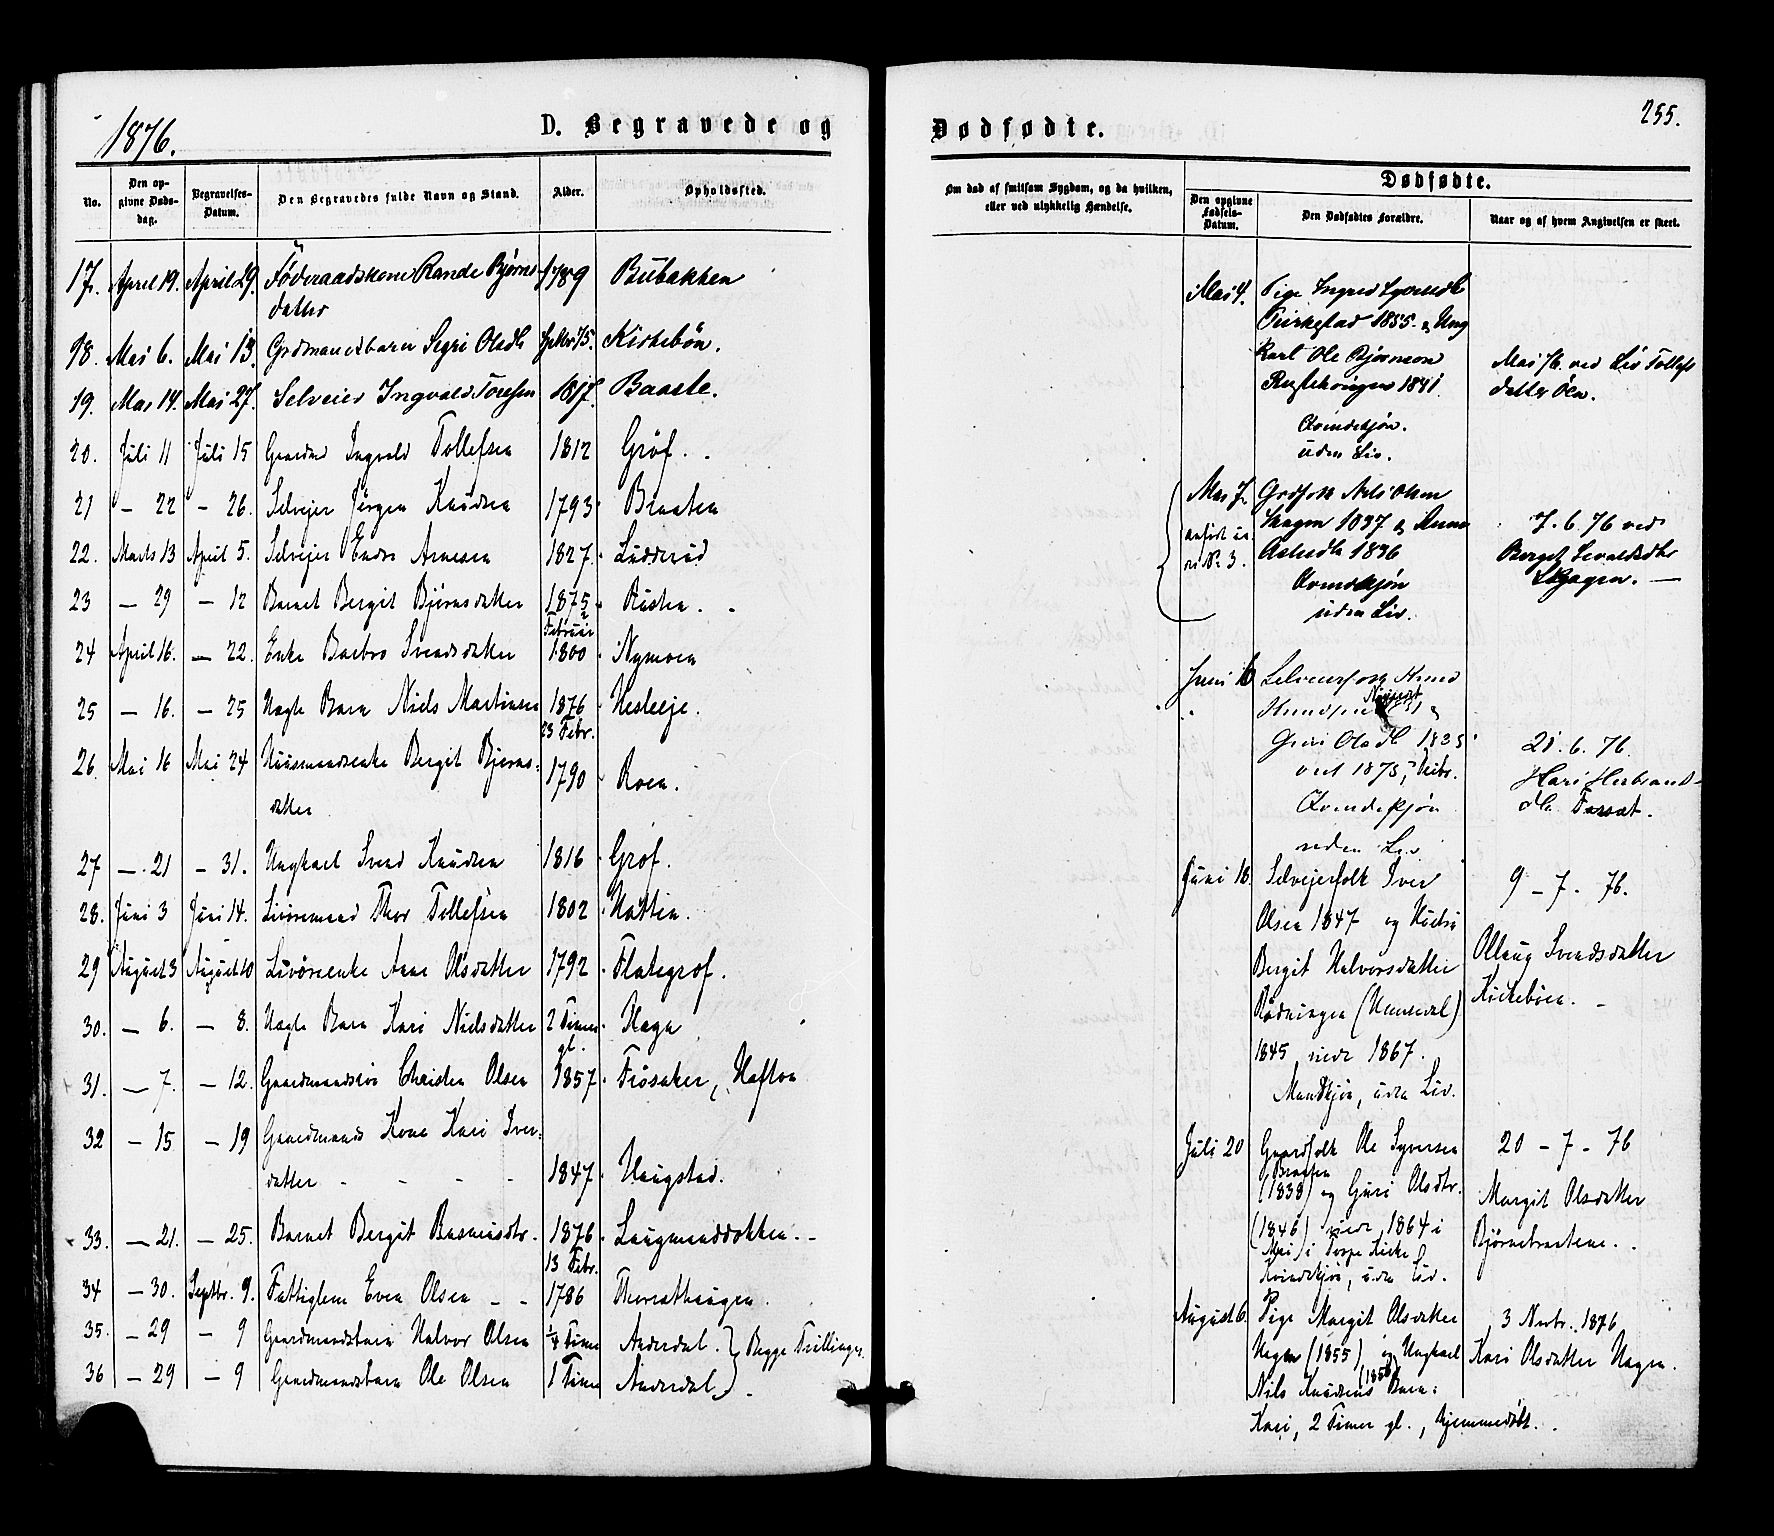 1876.
D. Begravede og
No.
Den opgivne Dødsdag.
Begravelses-Datum.
Den Begravedes fulde Navn og Stand.
Alder.
Opholdssted.
17. April 19. April 29. Föderaadskone Rande Bjørns- 1789 Bubakken
datter
18. Mai 6. Mai 13. Grdmandsbarn Sigri Olsdtr Septbr 75. Kirkebön.
19. Mai 14. Mai 27. Selveier Ingvald Tovesen 1817. Baaste.
20. Juli 11 Juli 15 Gaardmd Ingvald Tollefsen 1812 Gröf.
21 — 22 — 26. Selvejer Jörgen Knudsen 1793 Braaten
22. Marts 13 April 5. Selvejer Endre Arnesen 1827. Ludderud
23 — 29 — 12 Barnet Bergit Björnsdatter 1875 Rusten.
Februar
24 April 16. — 22. Enke Barbro Svendsdatter 1800 Nymoen
25 — 16. — 25 Uægte Barn Niels Martinsen 1876 Hesleeje.
23 Febr.
26. Mai 16 Mai 24 Huusmandsenke Bergit Bjørns- 1790 Roen.
datter
27 — 21 — 31. Ungkarl Svend Knudsen 1816 Gröf.
28. Juni 3 Juni 14. Livöremand Thor Tollefsen 1802 Hattin.
29 August 3 August 10 Livöreenke Anne Olsdatter 1792 Flategröf.
30. — 6. — 8. Uægte Barn Kari Nielsdatter 2 Timer Hagen
gl.
31. — 7. — 12. Gaardmandssön Christen Olsen 1857 Fiösaker, Hafton
32 — 15 — 19 Gaardmands Kone Kari Iver-
datter - - - - 1847 Haugstad.
33. — 21. — 25. Barnet Bergit Rasmusdtr. 1876 Laugmanddokken.
13 Febr.
34 — 30. Septbr. 9. Fattiglem Even Olsen 1786 Thoreathaugen.
35. — 29 — 9 Gaardmandsbarn Halvor Olsen ¼ Time Anderdal. } Begge Trillinger.
36 — 29 — 9 Gaardmandsbarn Ole Olsen 1 Time Anderdal.
255.
Dødfødte.
Om død af smitsom Sygdom, og da hvilken, eller ved ulykkelig Hændelse.
Dødfødte.
Den opgivne Fødsels-Datum.
Den Dødfødtes Forældre.
Naar og af hvem Angivelsen er skeet.
Mai 4. Pige Ingrid
1855. og Ung
Karl Ole Björnson
1841
Kvindekjön.
uden Liv.
Mai 76. ved Liv Tollefs
datter Öen.
Mai 7. Grdfolk Nels Olsen
anført
No. 3.
Haagen 1837 og Anne
1836
Kvindekjön
uden Liv.
7. 6. 76 ved
Berget Sevaldsdtr
Hagen.
Juni 16 Selveierfolk
Knudsen
Guri Olsdtr 1835
viet 1875,
Kvindekjön
uden Liv
28. 6. 76.
Kari Herbrands-
dtr
Juni 18. Selvejerfolk Iver
Olsen 1847 og Hustru
Bergit Halvorsdatter
Rödningen (Hemsedal)
1845 viede 1867.
Mandkjön, uden Liv.
9 - 7 - 76.
Ollaug Svendsdatter
Kirkeböen.
Juli 20 Gaardfolk Ole Syversen
Braaten
(1838) og Guri Olsdtr.
(1846) viede 1864 i
Mai i Torpe Kirke
Kvindekjön, uden Liv.
20 - 7 - 76
Margit Olsdatter
Björnebraatene.
August 6. Pige Margit Olsdatter
Hagen (1855) og Ungkarl
(1858)
Nils Knudsens Barn:
Kari, 2 Timer gl., hjemmedöbt.
3 Novbr. 1876
Kari Olsdatter Hagen.